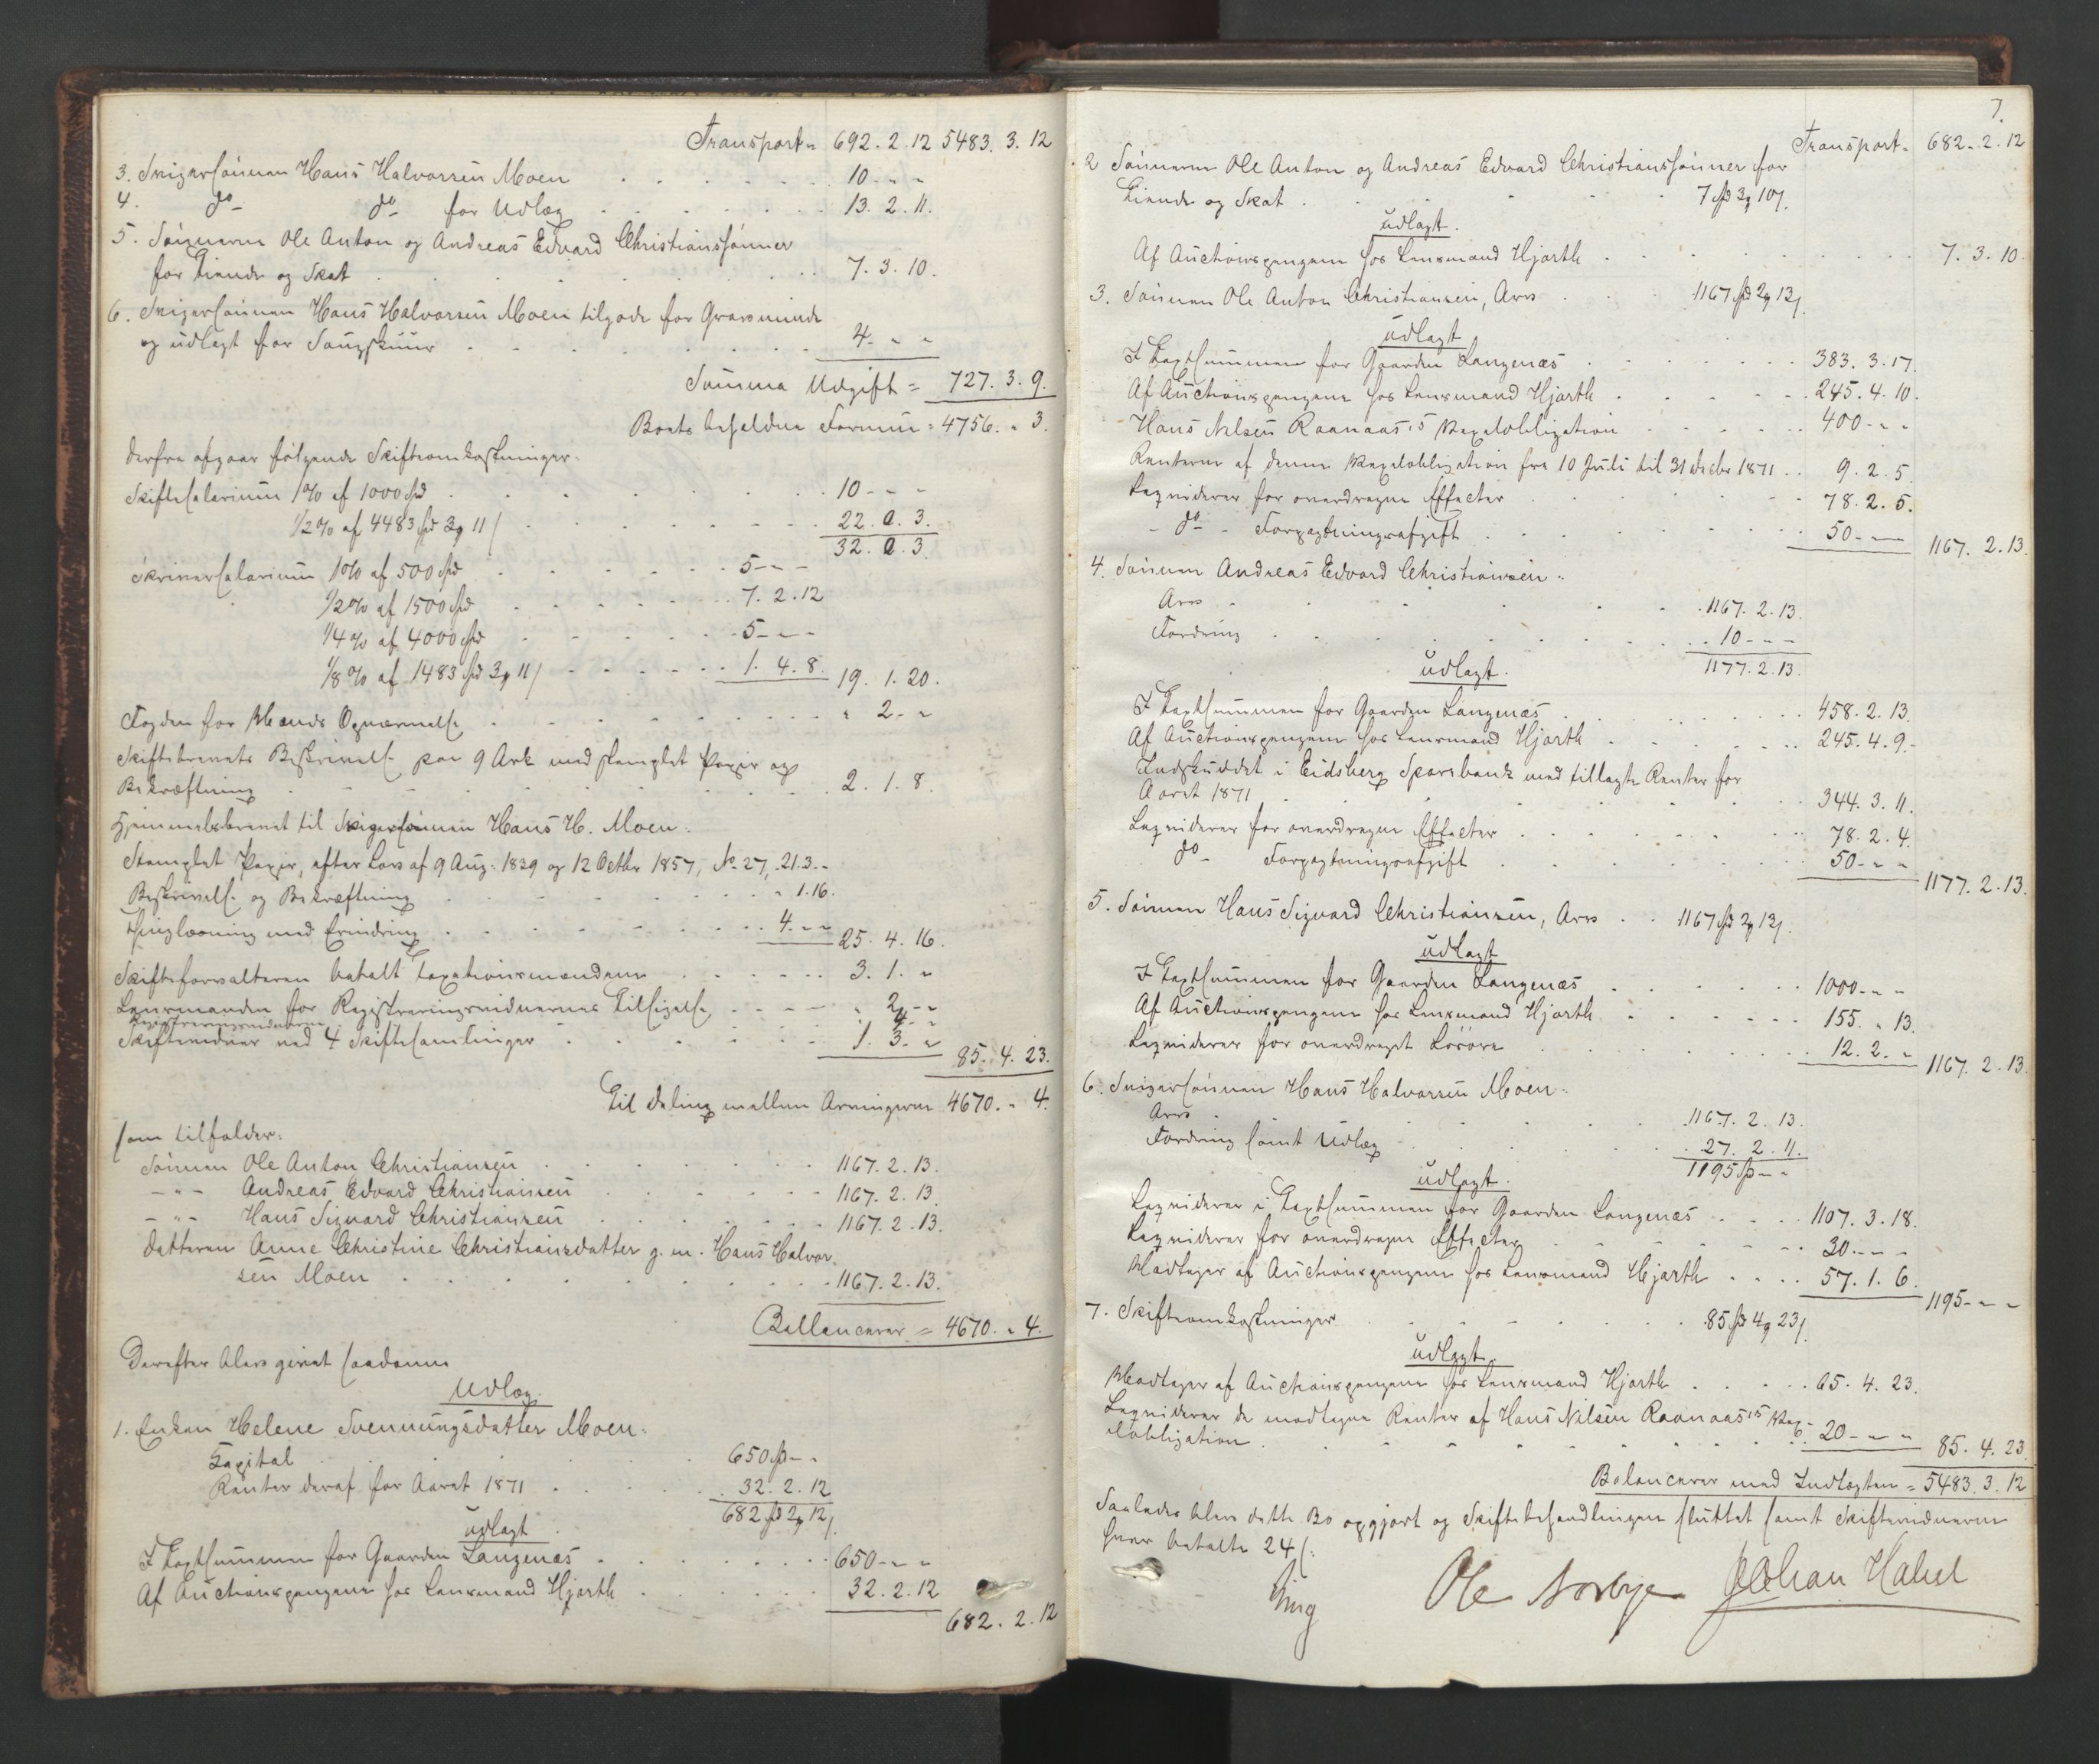 Transport = 692. 2. 12 5483. 3. 12
3. Svigersønnen Hans Halvorsen Moen . . . 10 - " -
4. do do for Udlæg . . . 13. 2. 11.
5. Sønnerne Ole Anton og Andreas Edvard Christianssønner
for Tiende og Skat . . . 7. 3. 10.
6. Svigersønnen Hans Halvorsen Moen tilgode for Gravminde
og udlagt for . . . 4 - " "
Summa Udgift = 727. 3. 9.
Boets beholdne Formue = 4756. " 3.
Derfra afgaar følgende Skifteomkostninger:
Skiftesalarium 1% af 1000 Spd . . . 10 - - -
1/2% af 4483 Spd 3 11 . . . 22. 2. 3.
32. 2. 3.
Skriversalarium 1% af 500 Spd . . . 5 - " -
1/2% af 1500 Spd . . . 7. 2. 12
1/4% af 4000 Spd . . . 5 - " -
1/8% af 1483 Spd 3 11 . . . 1. 4. 8. 19. 1. 20.
Fogden for Mands Opnævnelse . . . " 2 - "
Skiftebrevets Beskrivelse paa 9 Ark med stemplet Papir og
Bekræftning . . . 2. 1. 8.
Hjemmelsbrevet til Svigersønnen Hans H. Moen:
Stemplet Papir, efter Lov af 9 Aug. 1839 og 12 Octbr 1857, No 27, 21. 3. -
Beskrivelse og Bekræftning . . . " 1. 16.
Thinglæsning med Erindring . . . 4 - " " 25. 4. 16.
Skifteforvalteren betalt Taxationsmændene . . . 3. 1. "
Lensmanden for Registreringsvidnernes Tilsigelse . . . " 2 - "
Registreringsvidnerne " 4 - "
Skiftevidner ved 4 Skiftesamlinger . . . 1. 3. " 85. 4. 23.
Til Deling mellem Arvingerne 4670. " 4.
som tilfalder:
Sønnen Ole Anton Christiansen . . . 1167. 2. 13.
- " - Andreas Edvard Christiansen . . . 1167. 2. 13
- " - Hans Sigvard Christiansen . . . 1167. 2. 13.
Datteren Anne Christine Christiansdatter g. m. Hans Halvor-
sen Moen . . . 1167. 2. 13.
Ballancerer = 4670. " 4.
Derefter blev givet saadanne
Udlæg.
1. Enken Helene Svennungsdatter Moen:
Kapital . . . 650 Sp - "
Renter deraf for Aaret 1871 . . . 32. 2. 12
682 Spd 2 12
udlagt
I Taxtsummen for Gaarden Langenæs . . . 650 - " "
Af Auctionspengene hos Lensmand Hjorth . . . 32. 2. 12
682. 2. 12
7.
Transport = 682. 2. 12
2 Sønnerne Ole Anton og Andreas Edvard Christianssønner for
Tiende og Skat . . . 7 Spd 3 10
udlagt.
Af Auctionspengene hos Lensmand Hjorth . . . 7. 3. 10.
3. Sønnen Ole Anton Christiansen, Arv . . . 1167 Spd 2 13
udlagt
I Taxtsummen for Gaarden Langenæs . . . 383. 3. 17.
Af Auctionspengene hos Lensmand Hjorth . . . 245. 4. 10.
Hans Nilsen Raanaas's Vexelobligation . . . 400 - " "
Renterne af denne Vexelobligation fra 10 Juli til 31 Decbr 1871 . . 9. 2. 5.
Liqviderer for overdragne Effecter . . . 78. 2. 5.
- do - Forpagtningsafgift . . . 50 - " - 1167. 2. 13.
4. Sønnen Andreas Edvard Christiansen:
Arv . . . 1167. 2. 13.
Fordring . . . 10 - " -
1177. 2. 13.
udlagt.
I Taxtsummen for Gaarden Langenæs . . . 458. 2. 13.
Af Auctionspengene hos Lensmand Hjorth . . . 245. 4. 9.
Indskuddet i Eidsberg Sparebank med tillagte Renter for
Aaret 1871 . . . 344. 3. 11.
Liqviderer for overdragne Effecter . . . 78. 2. 4.
do - Forpagtningsafgift . . . 50 - " "
1177. 2. 13.
5. Sønnen Hans Sigvard Christiansen, Arv . . 1167 Spd 2 13
udlagt
I Taxtsummen for Gaarden Langenæs . . . 1000 - " "
Af Auctionspengene hos Lensmand Hjorth . . . 155. " 13.
Liqviderer for overdraget Løsøre . . . 12. 2. " 1167. 2. 13.
6. Svigersønnen Hans Halvorsen Moen:
Arv . . . 1167. 2. 13.
Fordring samt Udlæg . . . 27. 2. 11.
1195 Sp - "
udlagt.
Liqviderer i Taxtsummen for Gaarden Langenæs . . . 1107. 3. 18.
Liqviderer for overdragne Effecter . . . 30 - " -
Modtager af Auctionspengene hos Lensmand Hjorth . . . 57. 1. 6.
1195 - " "
7. Skifteomkostninger . . . 85 Spd 4 23
udlagt.
Modtager af Auctionspengene hos Lensmand Hjorth . . . 65. 4. 23.
Liqviderer de modtagne Renter af Hans Nilsen Raanaas's Vex-
elobligation . . . 20 - " " 85. 4. 23
Balancerer med Indtægten = 5483. 3. 12
Saaledes blev dette Bo opgjort og Skiftebehandlingen sluttet samt Skiftevidnerne
hver betalte 24
Ole Johan